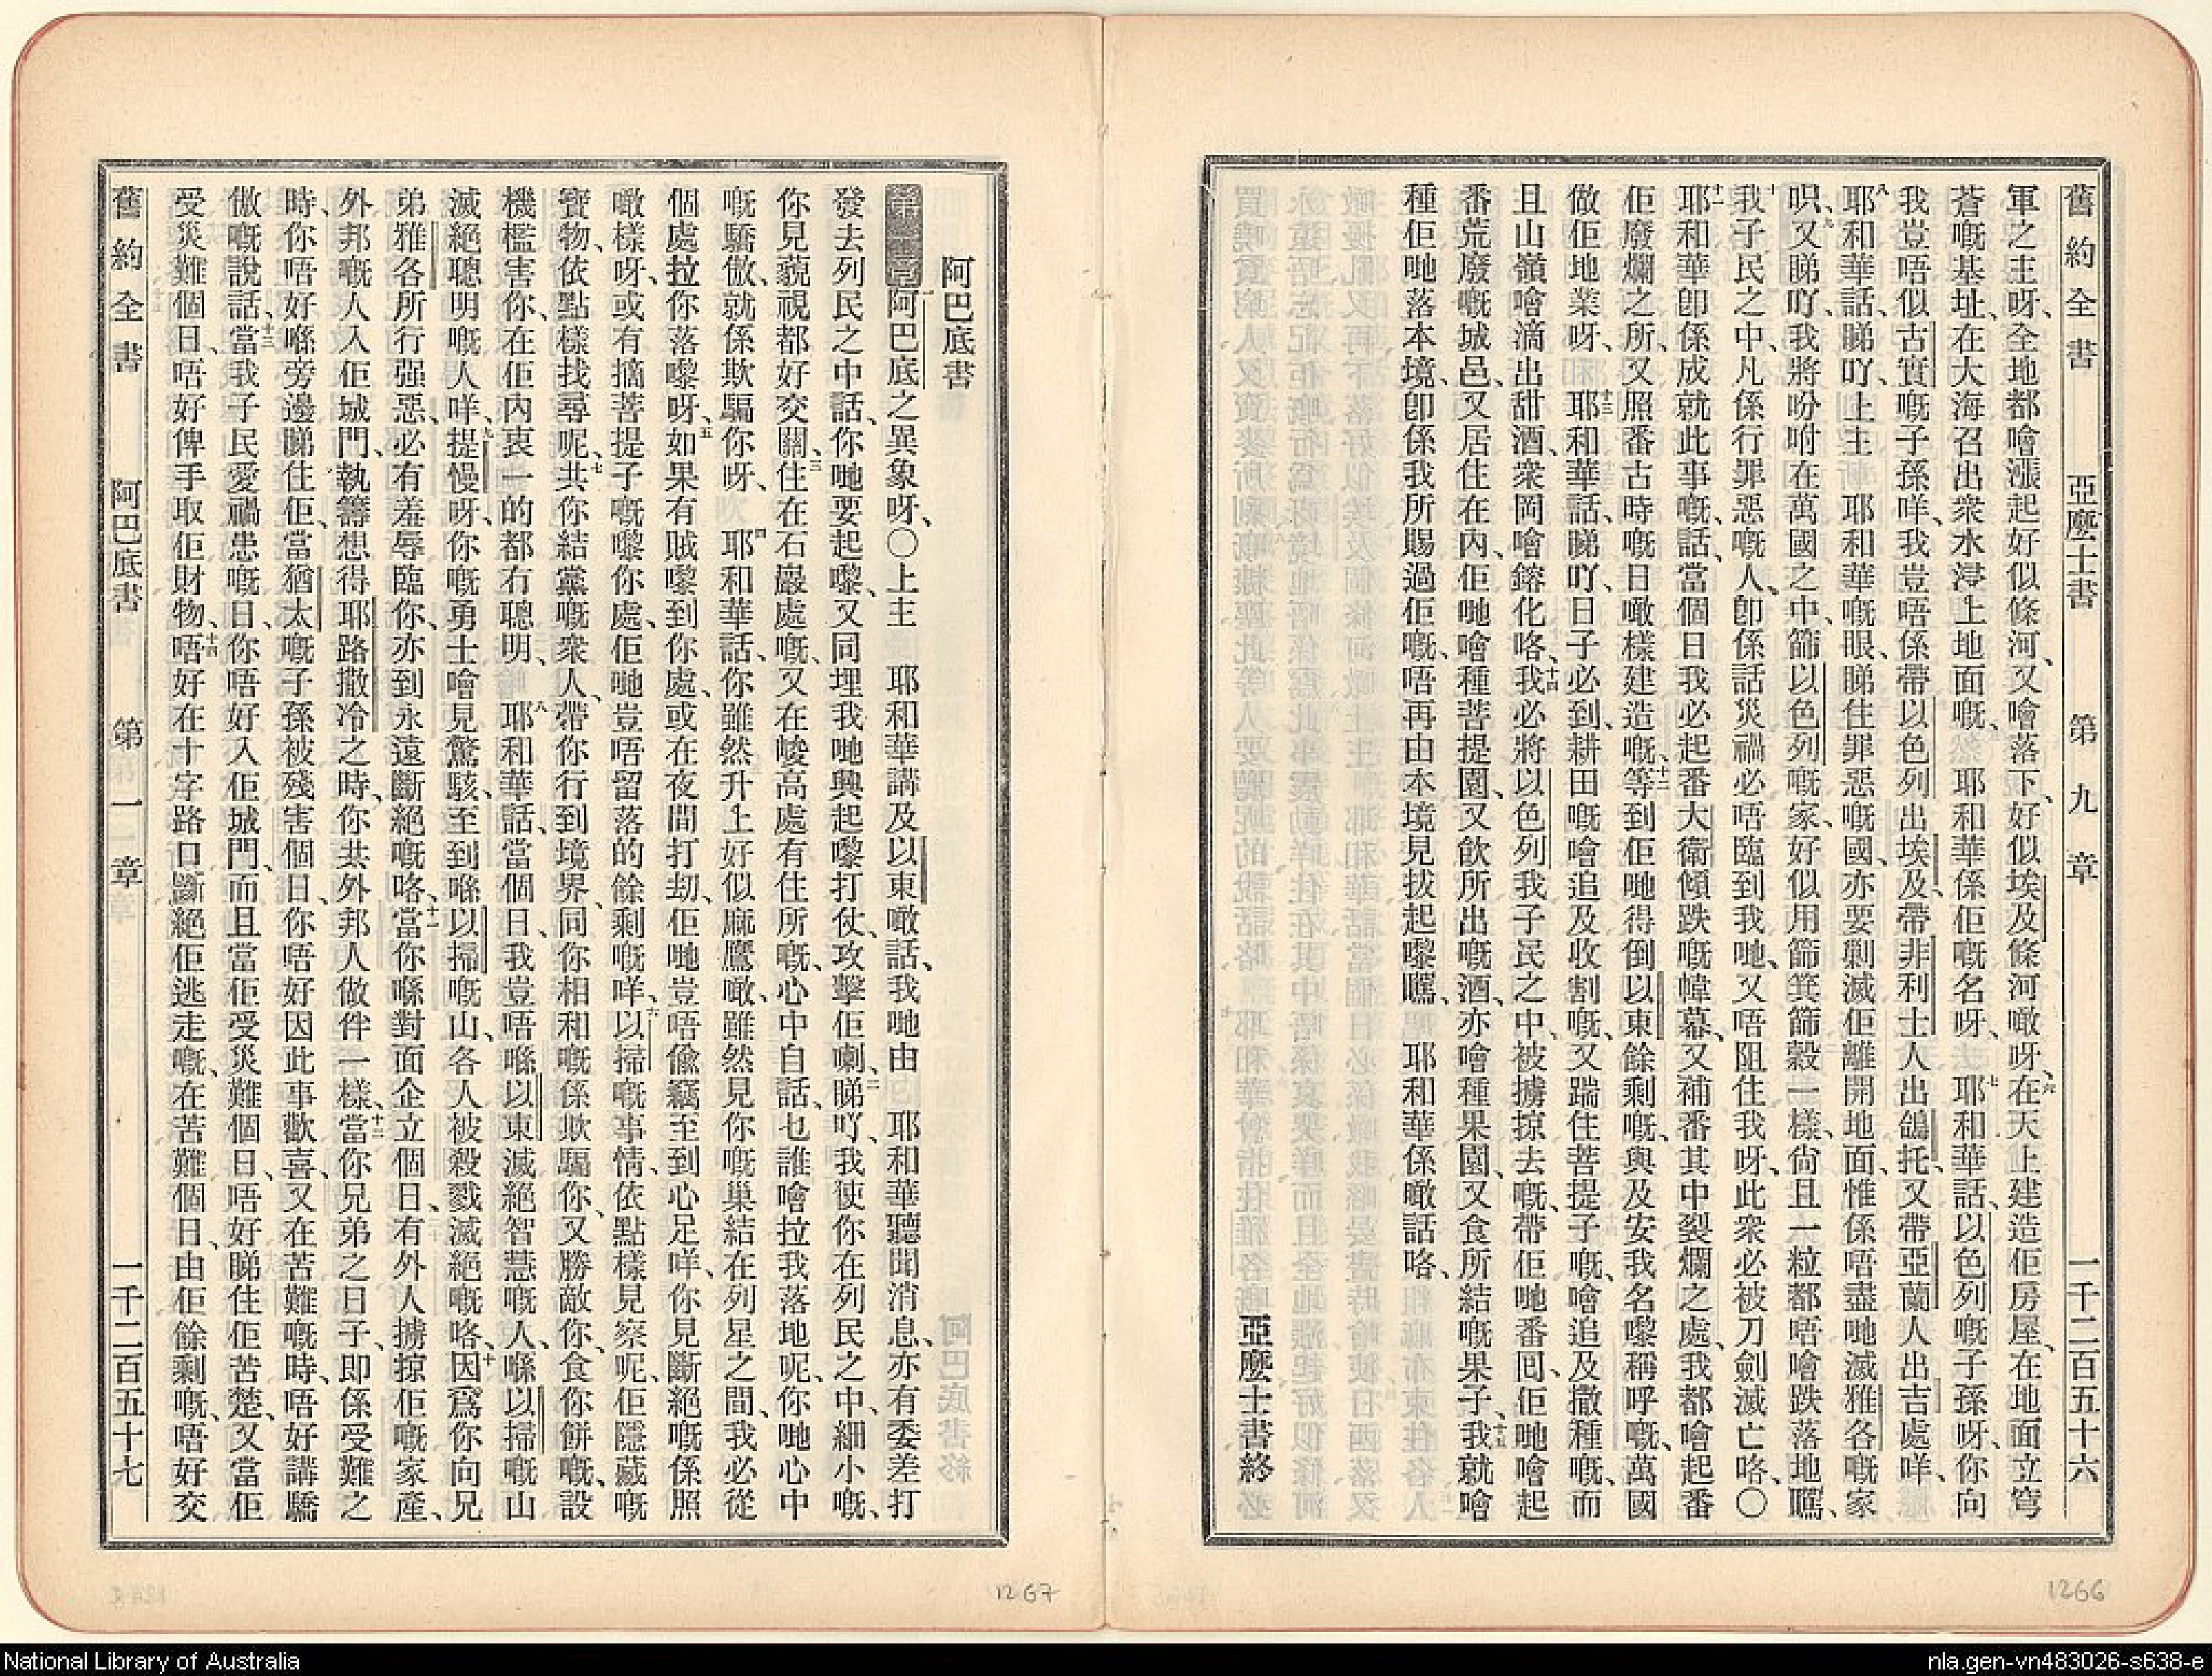 舊約全書　亞麼士書　第九章　一千二百五十六
軍之主呀、全地都噲漲起好似條河、又噲落下、好似埃及條河噉呀、六在天上建造佢房屋、在地面立穹
蒼嘅基址、在大海召出衆水浸上地面嘅、耶和華係佢嘅名呀、七耶和華話、以色列嘅子孫呀、你向
我豈唔似古實嘅子孫咩、我豈唔係帶以色列出埃及、帶非利士人出鴿托、又帶亞蘭人出吉處咩、
八耶和華話、睇吖、上主耶和華嘅眼、睇住罪惡嘅國、亦要剿滅佢離開地面、惟係唔盡哋滅雅各嘅家
呮、九又睇吖、我將吩咐在萬國之中、篩以色列嘅家、好似用篩箕篩穀一樣、尙且一粒都唔噲跌落地嚸、
十我子民之中、凡係行罪惡嘅人、卽係話災禍必唔臨到我哋、又唔阻住我呀、此衆必被刀劍滅亡咯、〇
十一耶和華卽係成就此事嘅、話、當個日我必起番大衛傾跌嘅幃幕、又補番其中裂爛之處、我都噲起番
佢廢爛之所、又照番古時嘅日噉樣建造嘅、十二等到佢哋得倒以東餘剩嘅、與及安我名嚟稱呼嘅、萬國
做佢地業呀、十三耶和華話、睇吖、日子必到、耕田嘅噲追及收割嘅、又踹住菩提子嘅、噲追及撒種嘅、而
且山嶺噲滴出甜酒、衆岡噲鎔化咯、十四我必將以色列我子民之中、被擄掠去嘅、帶佢哋番囘、佢哋噲起
番荒廢嘅城邑、又居住在內、佢哋噲種菩提園、又飲所出嘅酒、亦噲種果園、又食所結嘅果子、十五我就噲
種佢哋落本境、卽係我所賜過佢嘅、唔再由本境見拔起嚟嚸、耶和華係噉話咯、
亞麼士書終
1266
阿巴底書
第一章　一阿巴底之異象呀、〇上主耶和華講及以東噉話、我哋由耶和華聽聞消息、亦有委差打
發去列民之中話、你哋要起嚟、又同埋我哋興起嚟打仗、攻擊佢喇、二睇吖、我使你在列民之中、細小嘅、
你見藐視都好交關、三住在石巖處嘅、又在峻高處有住所嘅、心中自話、乜誰噲拉我落地呢、你哋心中
嘅驕傲、就係欺騙你呀、四耶和華話、你雖然升上好似麻鷹噉、雖然見你嘅巢結在列星之間、我必從
個處拉你落嚟呀、五如果有賊嚟到你處、或在夜間打刧、佢哋豈唔偸竊至到心足咩、你見斷絕嘅係照
噉樣呀、或有摘菩提子嘅嚟你處、佢哋豈唔留落的餘剩嘅咩、六以掃嘅事情、依點樣見察呢、佢隱藏嘅
寳物、依點樣找尋呢、七共你結黨嘅衆人、帶你行到境界、同你相和嘅、係欺騙你、又勝敵你、食你餅嘅、設
機檻害你、在佢內衷一的都冇聰明、八耶和華話、當個日、我豈唔喺以東滅絕智慧嘅人、喺以掃嘅山
滅絕聰明嘅人咩、九提慢呀、你嘅勇士噲見驚駭、至到喺以掃嘅山、各人被殺戮滅絕嘅咯、十因爲你向兄
弟雅各所行强惡、必有羞辱臨你、亦到永遠斷絕嘅咯、十一當你喺對面企立個日、有外人擄掠佢嘅家產、
外邦嘅人入佢城門、執籌想得耶路撒冷之時、你共外邦人做伴一樣、十二當你兄弟之日子、卽係受難之
時、你唔好喺旁邊睇住佢、當猶太嘅子孫被殘害個日、你唔好因此事歡喜、又在苦難嘅時、唔好講驕
傲嘅說話、十三當我子民愛禍患嘅日、你唔好入佢城門、而且當佢受災難個日、唔好睇住佢苦楚、又當佢
受災難個日、唔好俾手取佢財物、十四唔好在十字路口斷絕佢逃走嘅、在苦難個日、由佢餘剩嘅、唔好交
舊約全書　阿巴底書　第一章　一千二百五十七
1267
National Library of Australia
nla.gen-vn483026-s638-e